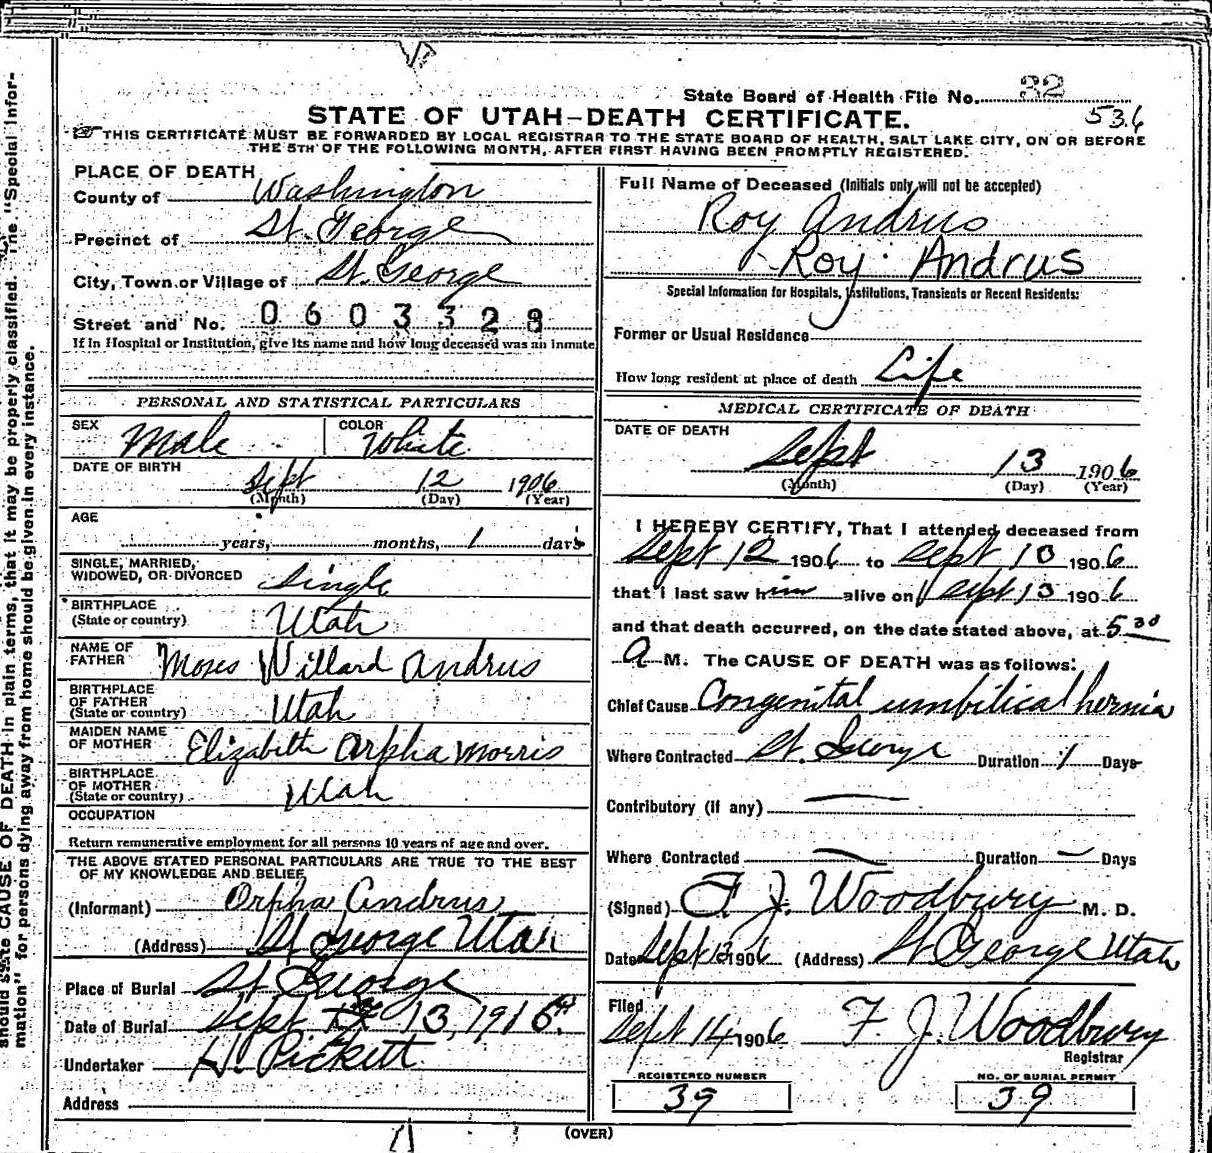 State Board of Health File No. 32
536
STATE OF UTAH–DEATH CERTIFICATE.
THIS CERTIFICATE MUST BE FORWARDED BY LOCAL REGISTRAR TO THE STATE BOARD OF HEALTH, SALT LAKE CITY, ON OR BEFORE
THE 5TH OF THE FOLLOWING MONTH, AFTER FIRST HAVING BEEN PROMPTLY REGISTERED.
PLACE OF DEATH
County of Washington
Precinct of St. George
City, Town or Village of St. George
Street and No. 0603328
If in Hospital or Institution, give its name and how long deceased was an inmate
PERSONAL AND STATISTICAL PARTICULARS
SEX Male COLOR White
DATE OF BIRTH Sept 12 1906
(Month) (Day) (Year)
AGE
years, months, 1 days
SINGLE, MARRIED,
WIDOWED, OR DIVORCED Single
BIRTHPLACE
(State or country) Utah
NAME OF
FATHER Moses Willard Andrus
BIRTHPLACE
OF FATHER
(State or country) Utah
MAIDEN NAME
OF MOTHER Elizabeth Orpha Morris
BIRTHPLACE
OF MOTHER
(State or country) Utah
OCCUPATION
Return remunerative employment for all persons 10 years of age and over.
THE ABOVE STATED PERSONAL PARTICULARS ARE TRUE TO THE BEST
OF MY KNOWLEDGE AND BELIEF
(Informant) Orpha Andrus
(Address) St George Utah
Place of Burial St George
Date of Burial Sept 13, 191
Undertaker H. Pickett
Address
Full Name of Deceased (Initials only will not be accepted)
Roy Andrus
Roy Andrus
Special Information for Hospitals, Institutions, Transients or Recent Residents:
Former or Usual Residence
How long resident at place of death Life
MEDICAL CERTIFICATE OF DEATH
DATE OF DEATH
Sept 13 1906
(Month) (Day) (Year)
I HEREBY CERTIFY, That I attended deceased from
Sept 12 1906 to Sept 1906
that I last saw him alive on Sept 13 1906
and that death occurred, on the date stated above, at 5 30
A M. The CAUSE OF DEATH was as follows:
Chief Cause Congenital umbilical hernia
Where Contracted St. George Duration 1 Days
Contributory (if any) —
Where Contracted — Duration — Days
(Signed) F. J. Woodbury M. D.
Date Sept 13 1906 (Address) St George Utah
Filed
Sept 14 1906 F. J. Woodbury
Registrar
REGISTERED NUMBER
39
NO. OF BURIAL PERMIT
39
(OVER)
should state CAUSE OF DEATH in plain terms, that it may be properly classified. The "Special Infor-
mation" for persons dying away from home should be given in every instance.